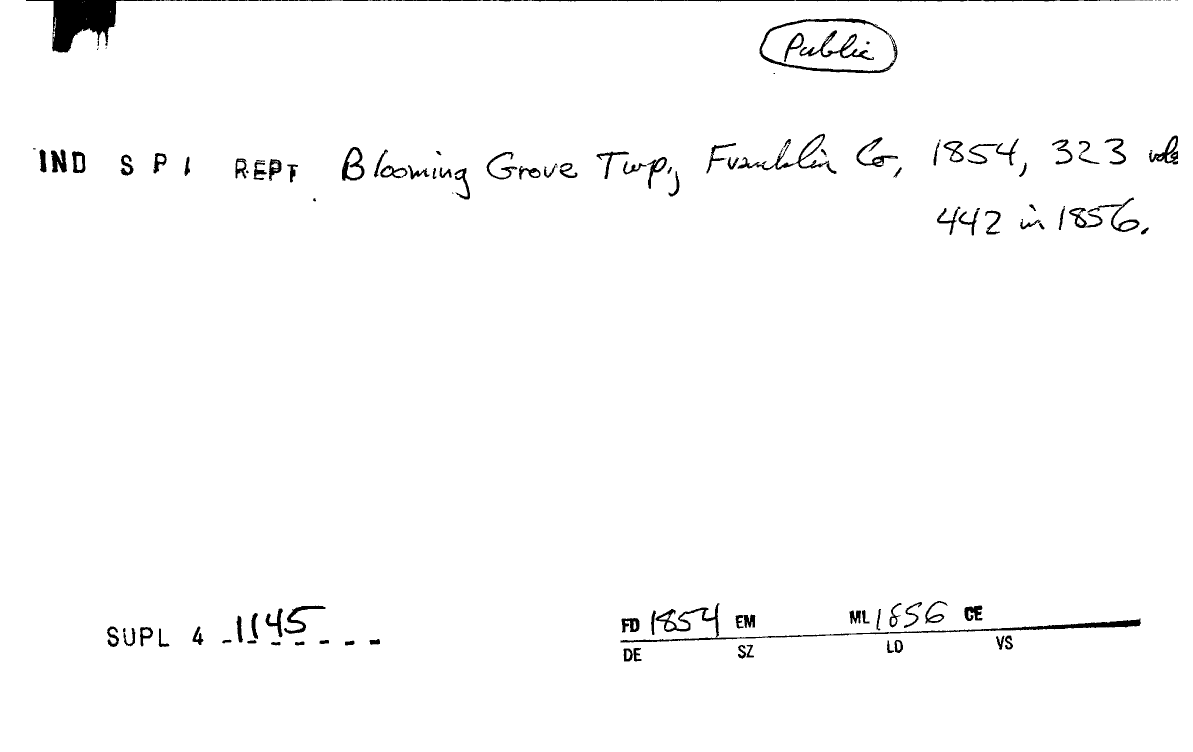 Public
IND S P I REPT. Blooming Grove Twp, Franklin Co, 1854, 323 vols
442 in 1856.
SUPL 4 -1145- - -
FD 1854 EM ML 1856 CE
DE SZ LD VS